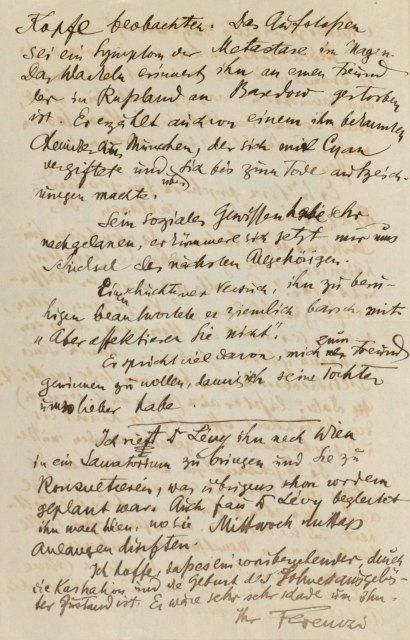 Kopfe beobachten. Das Aufstoßen
sei ein Symptom der Metastase im Magen.
Das Wackeln erinnert ihn an einen Freund
der in Rußland an Basedow gestorben
ist. Er erzählt auch von einem ihm bekannten
Chemiker aus München, der sich mit Cyan
vergiftete und sich bis zum Tode aufzeich-
nungen machte.
Sein soziales Gewissen habe sehr
nachgelassen, er kümmere sich jetzt nur ums
Schicksal der nächsten Angehörigen.
Einen schüchternen Versuch, ihn zu beru-
higen beantwortete er ziemlich barsch mit
„Aber affektieren Sie nicht".
Er spricht viel davon, mich zum Freund
gewinnen zu wollen, damit ich seine Tochter
umso lieber habe.
Ich rieth Dr Lévy ihn nach Wien
in ein Sanatorium zu bringen und Sie zu
Konsultieren, was übrigens schon vordem
geplant war. Auch Frau Dr Lévy begleitet
ihn nach Wien, wo sie Mittwoch Mittags
anlangen dürften.
Ich hoffe, daß es ein vorübergehender, durch
die Kastration und die Geburt des Sohnes ausgelös-
ter Zustand ist. Es wäre sehr sehr schade um ihn.
Ihr Ferenczi